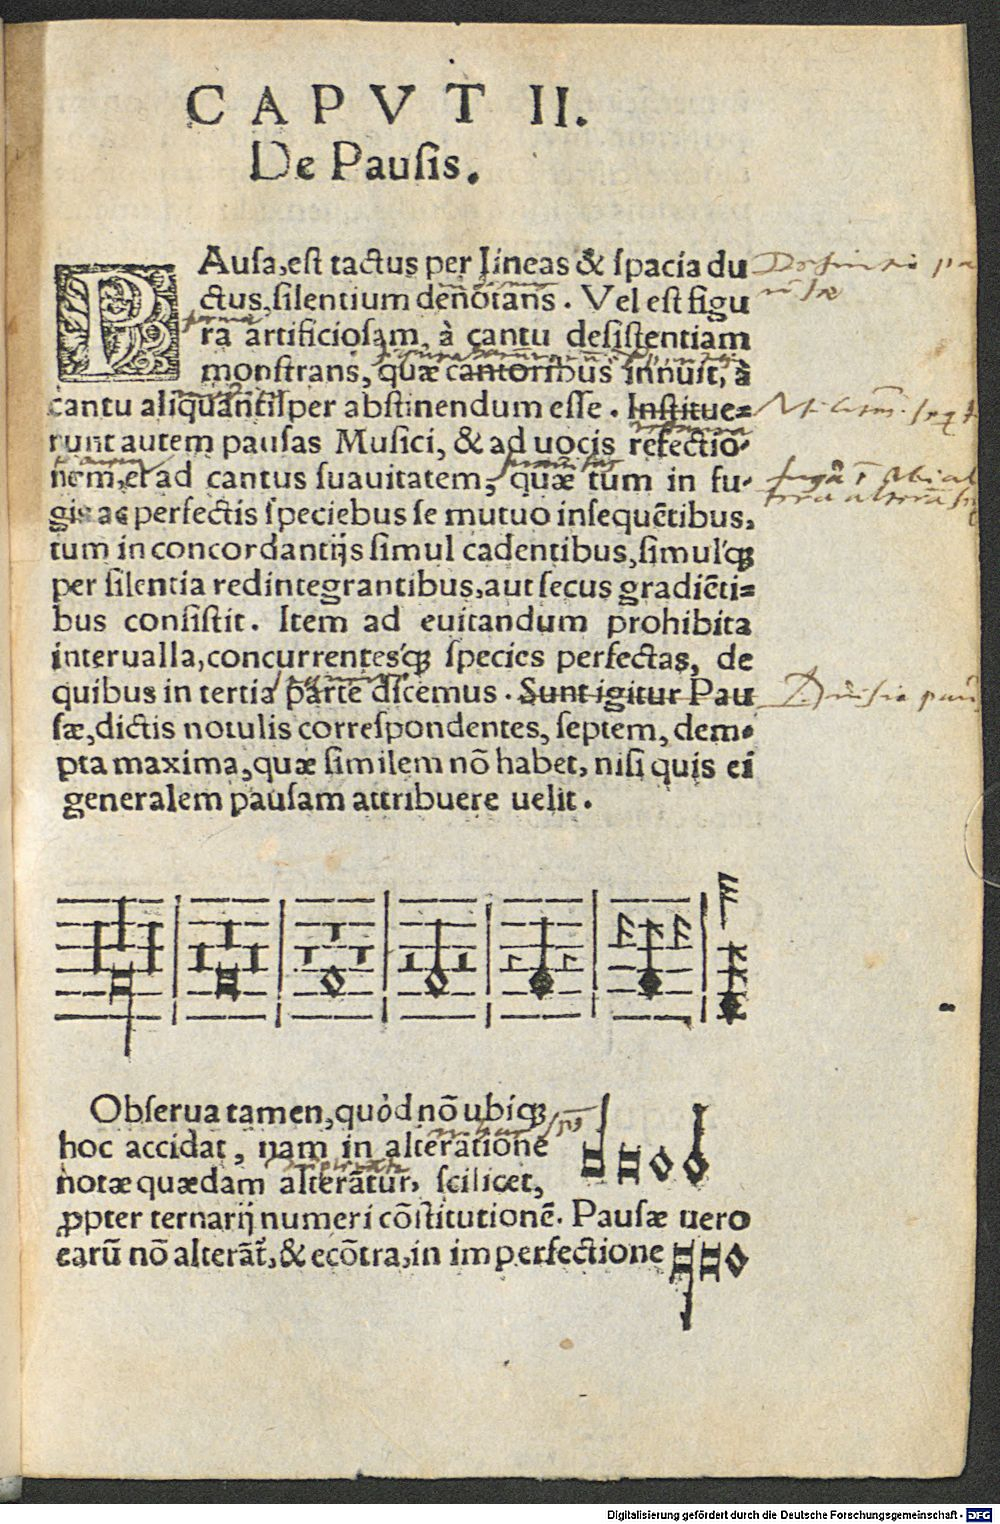 CAPVT II.
De Pausis.
PAusa, est tactus per lineas & spacia du
ctus, silentium denõtans. Vel est figu
ra artificiosam, à cantu desistentiam
monstrans, quæ cantoribus innuit, à
cantu aliquantisper abstinendum esse. Institue=
runt autem pausas Musici, & ad uocis refectio-
nem, et ad cantus suauitatem, quæ tum in fu-
gis ac perfectis speciebus se mutuo insequẽtibus,
tum in concordantijs simul cadentibus, simulq́ꝫ
per silentia redintegrantibus, aut secus gradiẽti=
bus consistit. Item ad euitandum prohibita
interualla, concurrentesq́ꝫ species perfectas, de
quibus in tertia parte dicemus. Sunt igitur Pau
sæ, dictis notulis correspondentes, septem, dem-
pta maxima, quæ similem nõ habet, nisi quis ei
generalem pausam attribuere uelit.
Obserua tamen, quòd nõ ubiqꝫ
hoc accidat, nam in alteratione
notæ quædam alterãtur, scilicet,
ꝓpter ternarij numeri cõstitutionẽ. Pausæ uero
earũ nõ alterãt᷑, & ecõtra, in imperfectione
Digitalisierung gefördert durch die Deutsche Forschungsgemeinschaft - DFG